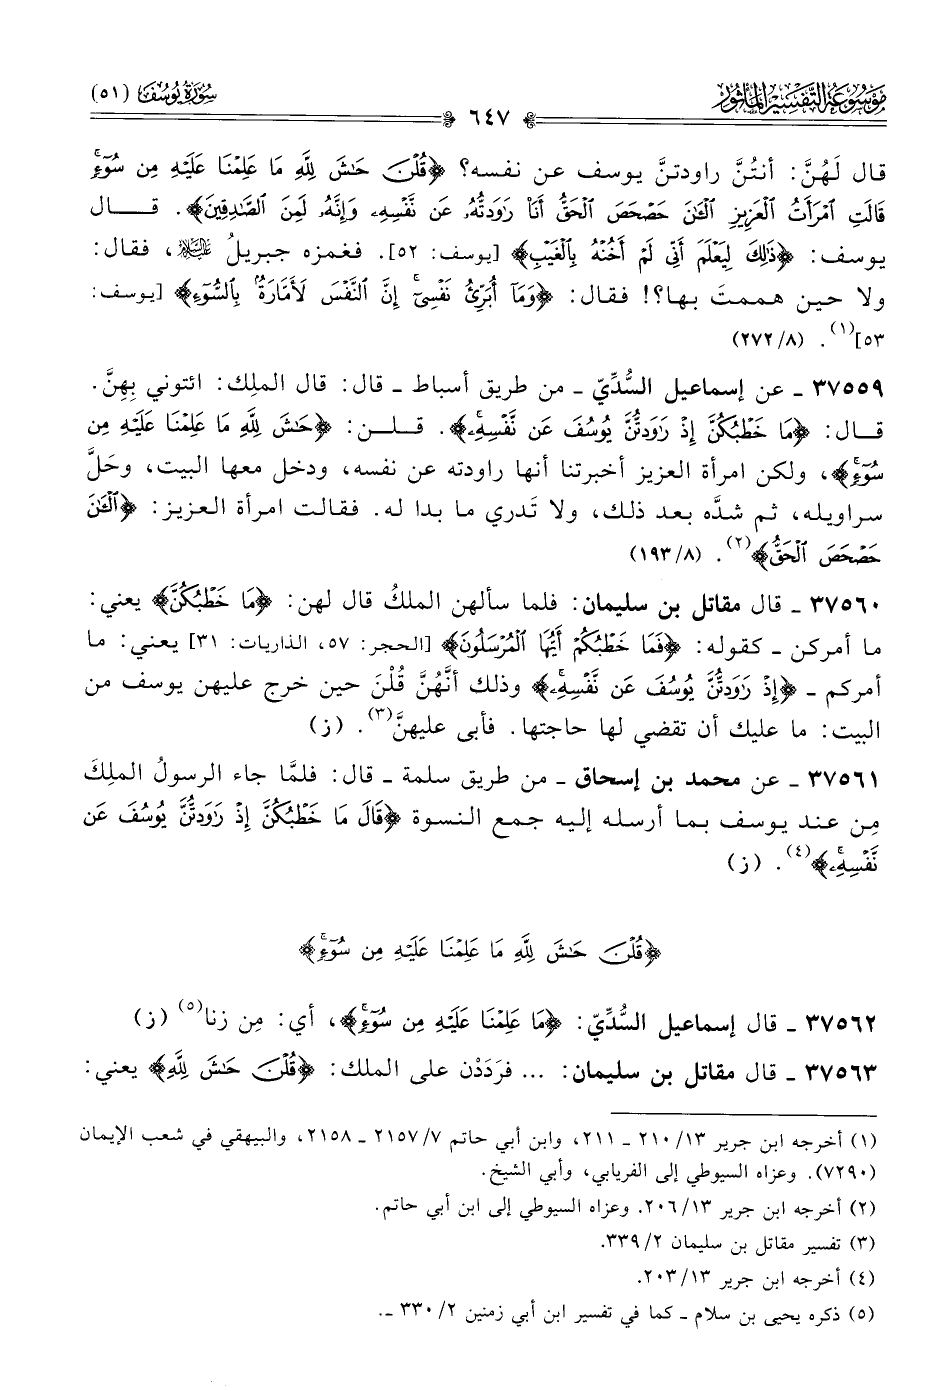 موسوعة التفسير المأثور
سورة يوسف (٥١)
٦٤٧
قال لَهُنَّ: أنتُنَّ راودتنَّ يوسف عن نفسه؟ ﴿قُلْنَ حَٰشَ لِلَّهِ مَا عَلِمْنَا عَلَيْهِ مِن سُوٓءٍۚ
قَالَتِ ٱمْرَأَتُ ٱلْعَزِيزِ ٱلْـَٰٔنَ حَصْحَصَ ٱلْحَقُّ أَنَا۠ رَٰوَدتُّهُۥ عَن نَّفْسِهِۦ وَإِنَّهُۥ لَمِنَ ٱلصَّٰدِقِينَ﴾. قـــال
يوسف: ﴿ذَٰلِكَ لِيَعْلَمَ أَنِّي لَمْ أَخُنْهُ بِٱلْغَيْبِ﴾ [يوسف: ٥٢]. فغمزه جبريلُ عليه السلام، فقال:
ولا حين هممتَ بها؟! فقال: ﴿وَمَآ أُبَرِّئُ نَفْسِيٓۚ إِنَّ ٱلنَّفْسَ لَأَمَّارَةٌۢ بِٱلسُّوٓءِ﴾ [يوسف:
٥٣](١). (٨/ ٢٧٢)
٣٧٥٥٩ ـ عن إسماعيل السُّدِّيّ ـ من طريق أسباط ـ قال: قال الملِك: ائتوني بِهِنَّ.
قــال: ﴿مَا خَطْبُكُنَّ إِذْ رَٰوَدتُّنَّ يُوسُفَ عَن نَّفْسِهِۦۚ﴾. قــلــن: ﴿حَٰشَ لِلَّهِ مَا عَلِمْنَا عَلَيْهِ مِن
سُوٓءٍۚ﴾، ولكن امرأة العزيز أخبرتنا أنها راودته عن نفسه، ودخل معها البيت، وحَلَّ
سراويله، ثم شدَّه بعد ذلك، ولا تَدري ما بدا له. فقالت امرأة العزيز: ﴿ٱلْـَٰٔنَ
حَصْحَصَ ٱلْحَقُّ﴾(٢). (٨/ ١٩٣)
٣٧٥٦٠ ـ قال مقاتل بن سليمان: فلما سألهن الملكُ قال لهن: ﴿مَا خَطْبُكُنَّ﴾ يعني:
ما أمركن ـ كقوله: ﴿فَمَا خَطْبُكُمْ أَيُّهَا ٱلْمُرْسَلُونَ﴾ [الحجر: ٥٧، الذاريات: ٣١] يعني: ما
أمركم ـ ﴿إِذْ رَٰوَدتُّنَّ يُوسُفَ عَن نَّفْسِهِۦۚ﴾ وذلك أنَّهُنَّ قُلْنَ حين خرج عليهن يوسف من
البيت: ما عليك أن تقضي لها حاجتها. فأبى عليهنَّ(٣). (ز)
٣٧٥٦١ ـ عن محمد بن إسحاق ـ من طريق سلمة ـ قال: فلمَّا جاء الرسولُ الملِكَ
مِن عند يوسف بما أرسله إليه جمع النسوة ﴿قَالَ مَا خَطْبُكُنَّ إِذْ رَٰوَدتُّنَّ يُوسُفَ عَن
نَّفْسِهِۦۚ﴾(٤). (ز)
﴿قُلْنَ حَٰشَ لِلَّهِ مَا عَلِمْنَا عَلَيْهِ مِن سُوٓءٍۚ﴾
٣٧٥٦٢ ـ قال إسماعيل السُّدِّيّ: ﴿مَا عَلِمْنَا عَلَيْهِ مِن سُوٓءٍۚ﴾، أي: مِن زنا(٥) (ز)
٣٧٥٦٣ ـ قال مقاتل بن سليمان: ... فرَدَدْن على الملك: ﴿قُلْنَ حَٰشَ لِلَّهِ﴾ يعني:
(١) أخرجه ابن جرير ١٣/ ٢١٠ ـ ٢١١، وابن أبي حاتم ٧/ ٢١٥٧ ـ ٢١٥٨، والبيهقي في شعب الإيمان
(٧٢٩٠). وعزاه السيوطي إلى الفريابي، وأبي الشيخ.
(٢) أخرجه ابن جرير ١٣/ ٢٠٦. وعزاه السيوطي إلى ابن أبي حاتم.
(٣) تفسير مقاتل بن سليمان ٢/ ٣٣٩.
(٤) أخرجه ابن جرير ١٣/ ٢٠٣.
(٥) ذكره يحيى بن سلام ـ كما في تفسير ابن أبي زمنين ٢/ ٣٣٠ ـ.